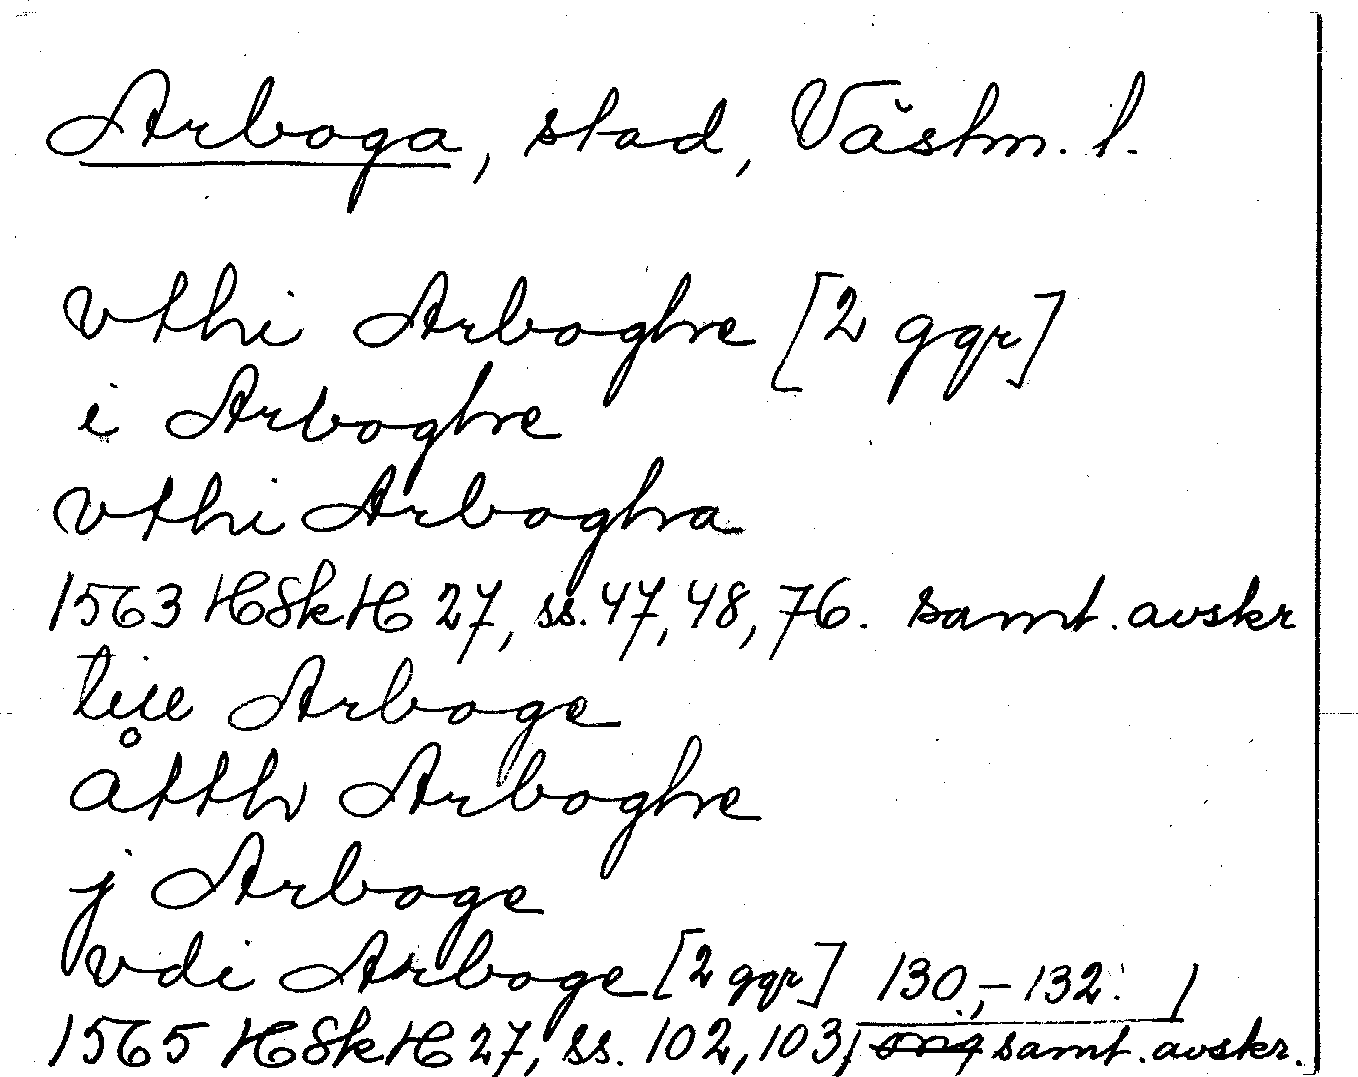 Arboga, stad, Västm. l.
vthi Arboghe [2 ggr]
i Arboghe
vthi Arbogha
1563 HSkH 27, ss. 47, 48, 76. samt. avskr
till Arboge
åtth Arboghe
j Arboge
vdi Arboge [2 ggr] 130,-132.
1565 HSkH 27, ss. 102, 103, samt. avskr.